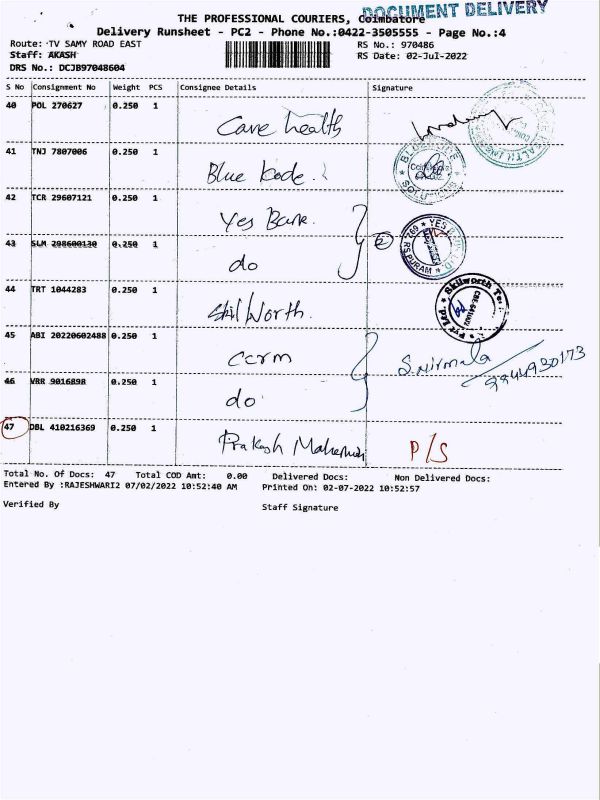 DOCUMENT DELIVERY
THE PROFESSIONAL COURIERS, Coimbatore
Delivery Runsheet - PC2 - Phone No.:0422-3505555 - Page No.:4
Route: TV SAMY ROAD EAST RS No.: 970486
Staff: AKASH RS Date: 02-Jul-2022
DRS No.: DCJB97048604
S No Consignment No Weight PCS Consignee Details Signature
40 POL 270627 0.250 1 Care health
41 TNJ 7807006 0.250 1 Blue Kode.
42 TCR 29607121 0.250 1 Yes Bank.
43 SLM 298600130 0.250 1 do
44 TRT 1044283 0.250 1 Skil Worth.
45 ABI 20220602488 0.250 1 ccrm S.Nirmala
46 VRR 9016898 0.250 1 do 9944930173
47 DBL 410216369 0.250 1 Prakash P/S
Total No. Of Docs: 47 Total COD Amt: 0.00 Delivered Docs: Non Delivered Docs:
Entered By :RAJESHWARI2 07/02/2022 10:52:40 AM Printed On: 02-07-2022 10:52:57
Verified By Staff Signature